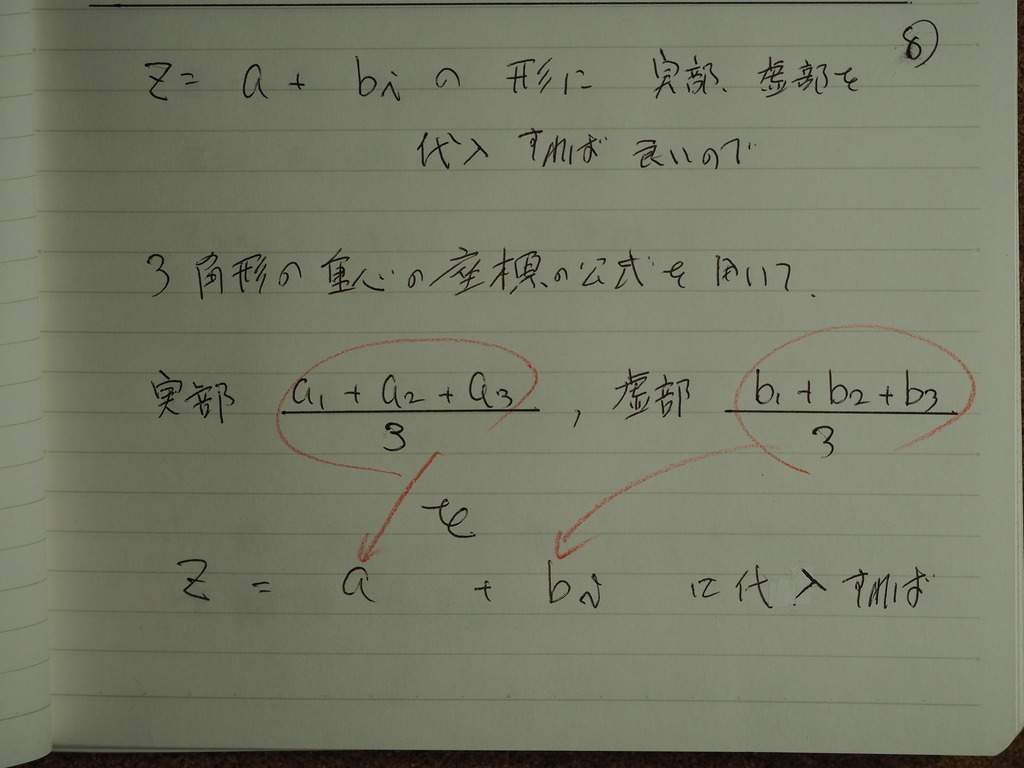 ⑧
z = a + bi の 形に 実部、虚部を
代入 すれば 良いので
3角形の重心の座標の公式を用いて、
実部 (a₁ + a₂ + a₃)/3 , 虚部 (b₁ + b₂ + b₃)/3
を
z = a + bi に代入すれば